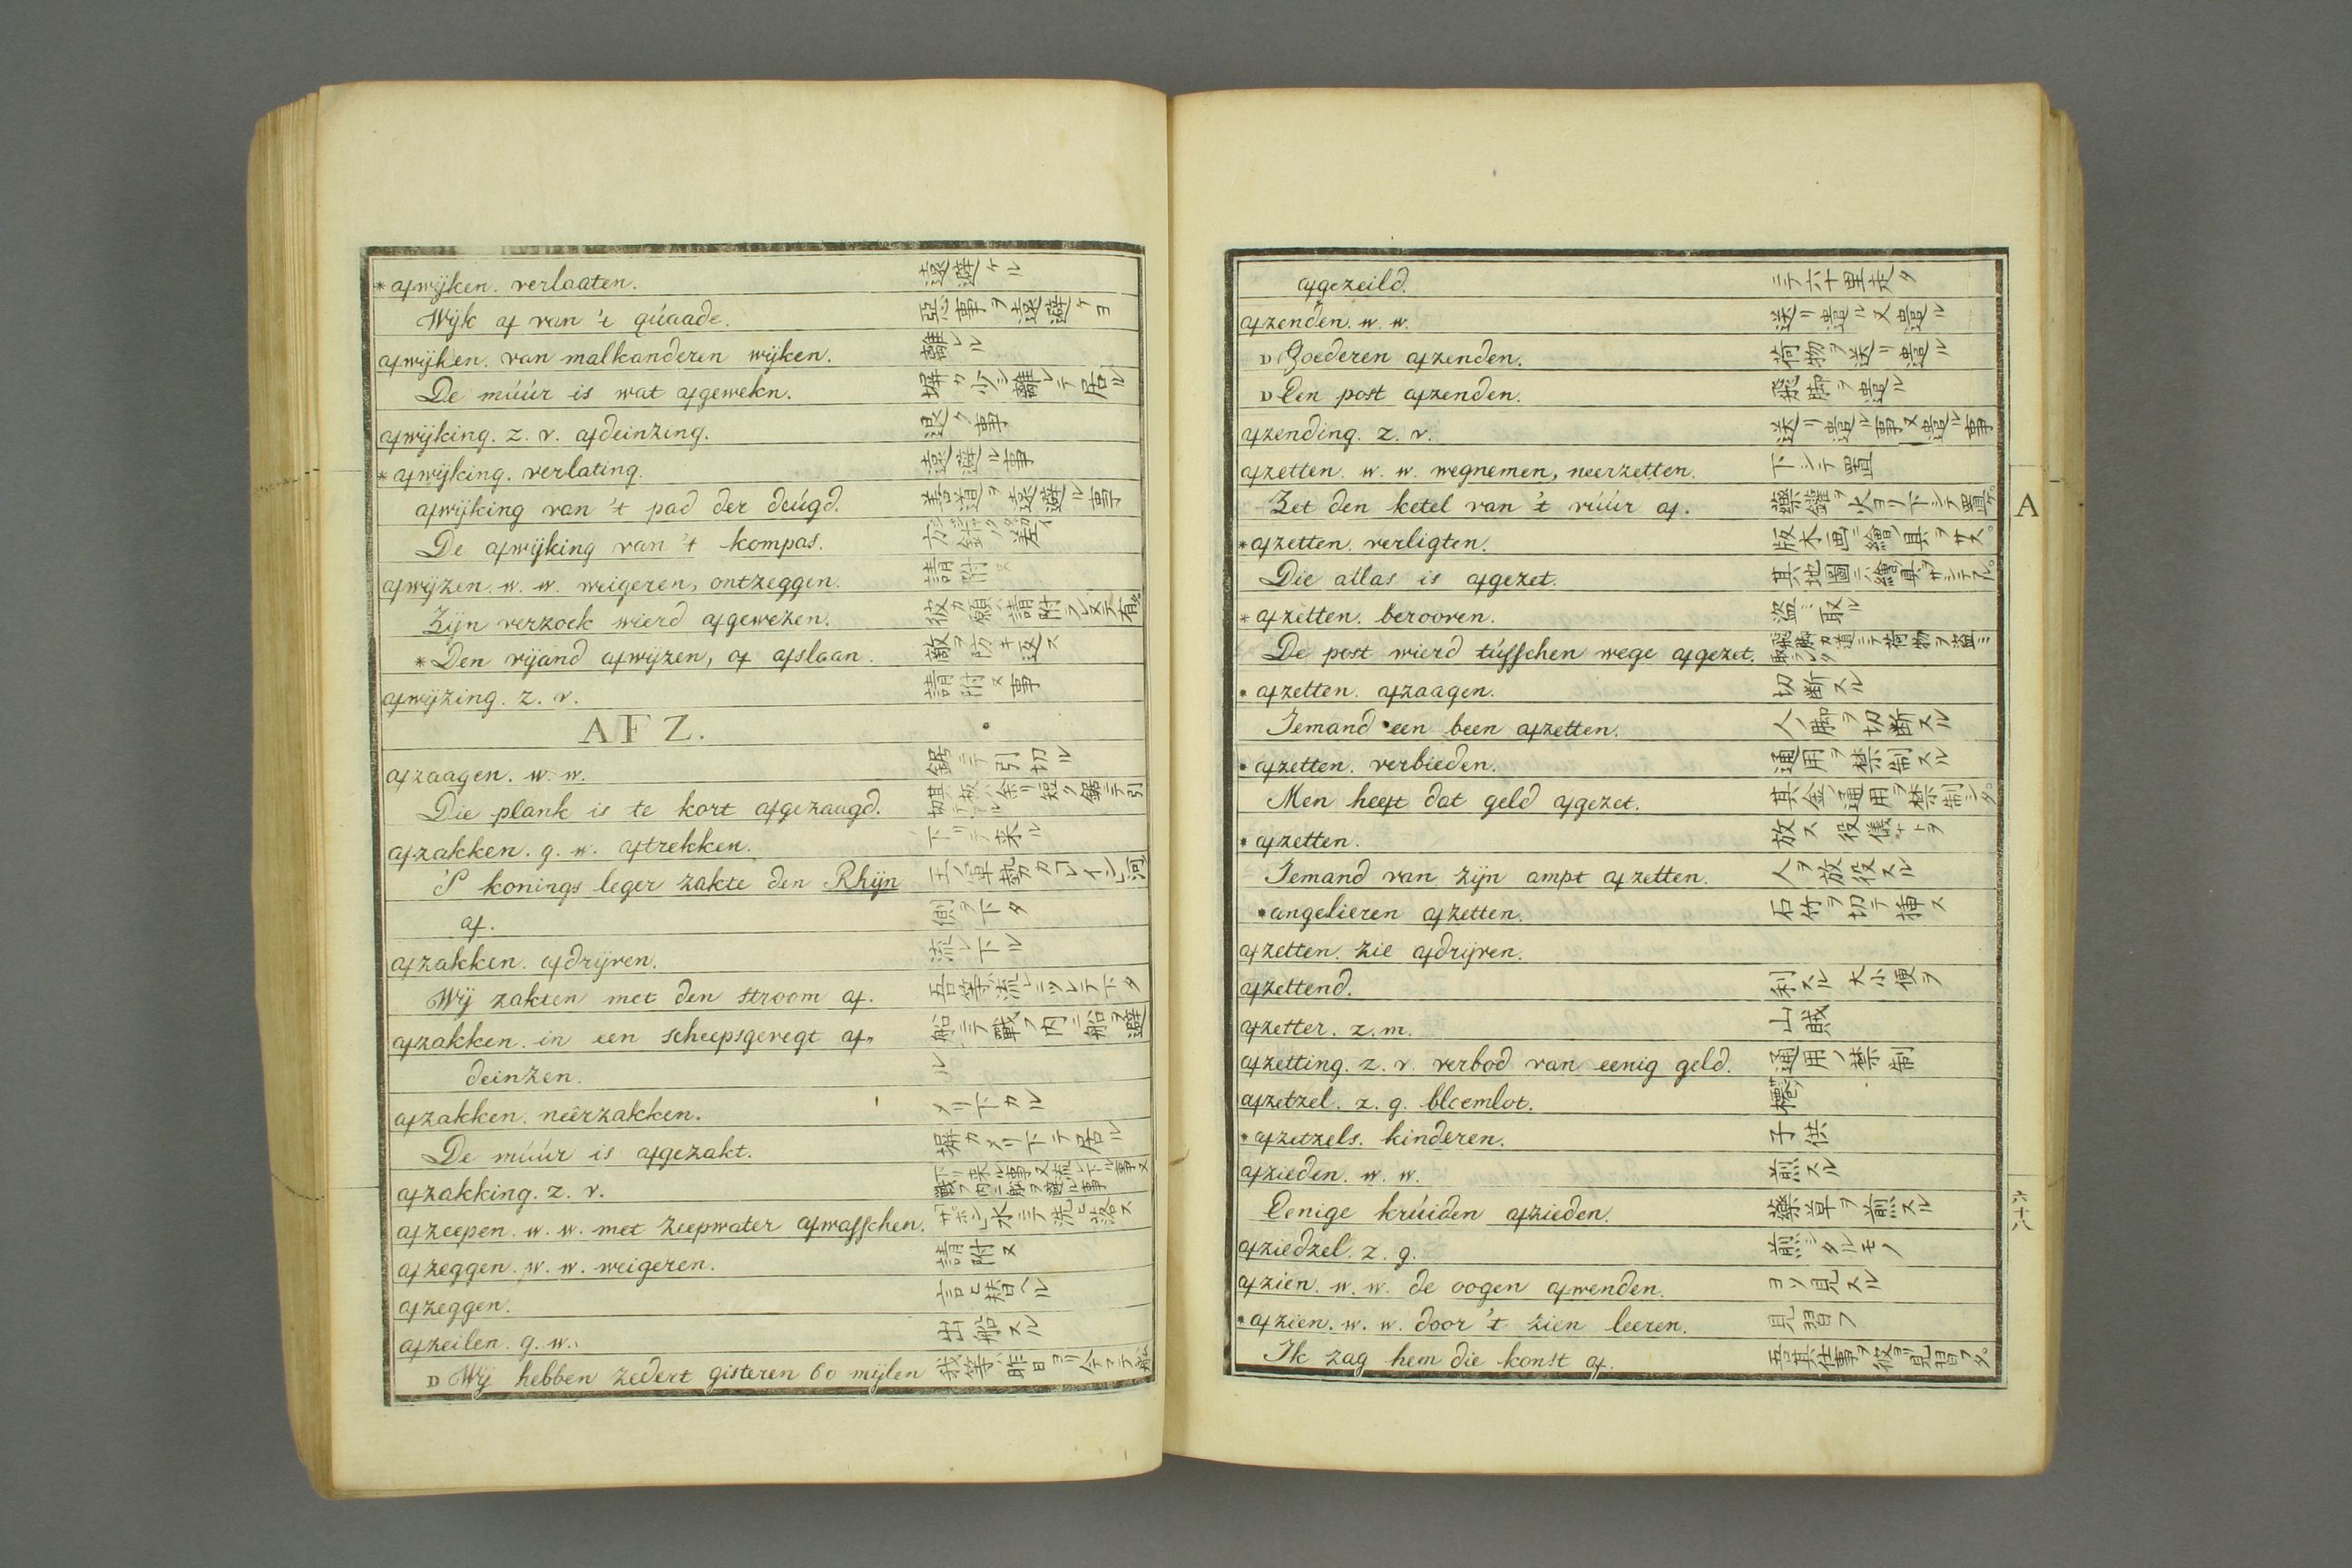 * afwijken. verlaaten. 遠避ケル
Wijk af van 't qúaade. 惡事ヲ遠避ケヨ
afwijken. van malkanderen wijken. 離レル
De múúr is wat afgewekn. 塀カ少シ離レテ居ル
afwijking. z. v. afdeinzing. 退ク事
* afwijking. verlating. 遠避ル事
afwijking van 't pad der deúgd. 善道ヲ遠避ル事
De afwijking van 't kompas. 方針ノ差イ
afwijzen. w. w. weigeren, ontzeggen. 請附ヌ
Zijn verzoek wierd afgewezen. 彼カ願ハ請附ラレヌテ有タ
* Den vijand afwijzen, of afslaan. 敵ヲ防キ返ス
afwijzing. z. v. 請附ヌ事
AFZ.
afzaagen. w. w. 鋸ニテ引切ル
Die plank is te kort afgezaagd. 其板ハ余リ短ク鋸ニテ引切テアル
afzakken. g. w. aftrekken. 下リテ来ル
'S konings leger zakte den Rhijn 王ノ軍勢カレイン河
af. 側ヲ下タ
afzakken. afdrijven. 流レ下ル
Wij zakten met den stroom af. 吾等ハ流レニツレテ下タ
afzakken. in een scheepsgevegt af„ 船ニテ戰フ内ニ船ヲ避
deinzen. ル
afzakken. neêrzakken. メリ下カル
De múúr is afgezakt. 塀カメリ下テ居ル
afzakking. z. v. 下リ来ル事又流レ下ル事又戰フ内ニ船ヲ避ル事
afzeepen. w. w. met zeepwater afwasschen. サボン水ニテ洗ヒ落ス
afzeggen. w. w. weigeren. 請附ヌ
afzeggen. 言ヒ替ヘル
afzeilen. g. w. 出船スル
D Wij hebben zedert gisteren 60 mijlen 我等ハ昨日ヨリ今マテ
afgezeild. ニテ六十里走タ
afzenden. w. w. 送リ遣ル又遣ル
D Goederen afzenden. 荷物ヲ送リ遣ル
D Een post afzenden. 飛脚ヲ遣ル
afzending. z. v. 送リ遣ル事又遣ル事
afzetten. w. w. wegnemen, neerzetten. 下シテ置
Zet den ketel van 't vúúr af. 藥鑵ヲ火ヨリ下シテ置ケ。
* afzetten. verligten. 版木画ニ繪具ヲサス。
Die atlas is afgezet. 其地圖ニハ繪具ヲサシテアル。
* afzetten. berooven. 盗ミ取ル
De post wierd tússchen wege afgezet. 飛脚カ道ニテ荷物ヲ盗ミ取ラレタ
* afzetten. afzaagen. 切断スル
Iemand een been afzetten. 人ノ脚ヲ切断スル
* afzetten. verbieden. 通用ヲ禁制スル
Men heeft dat geld afgezet. 其金ノ通用ヲ禁制シタ。
* afzetten. 放ス 役儀ナトヲ
Iemand van zijn ampt afzetten. 人ヲ放役スル
* angelieren afzetten. 石竹ヲ切テ挿ス
afzetten. zie afdrijven.
afzettend. 利スル 大小便ヲ
afzetter. z. m. 山賊
afzetting. z. v. verbod van eenig geld. 通用ノ禁制
afzetzel. z. g. bloemlot.
* afzetzels. kinderen. 子供
afzieden. w. w. 煎スル
Eenige krúiden afzieden. 藥草ヲ煎スル
afziedzel. z. g. 煎シタルモノ
afzien. w. w. de oogen afwenden. ヨソ見スル
* afzien. w. w. door 't zien leeren. 見習フ
Ik zag hem die konst af. 吾其仕事ヲ彼ヨリ見習フタ。
A
六十八